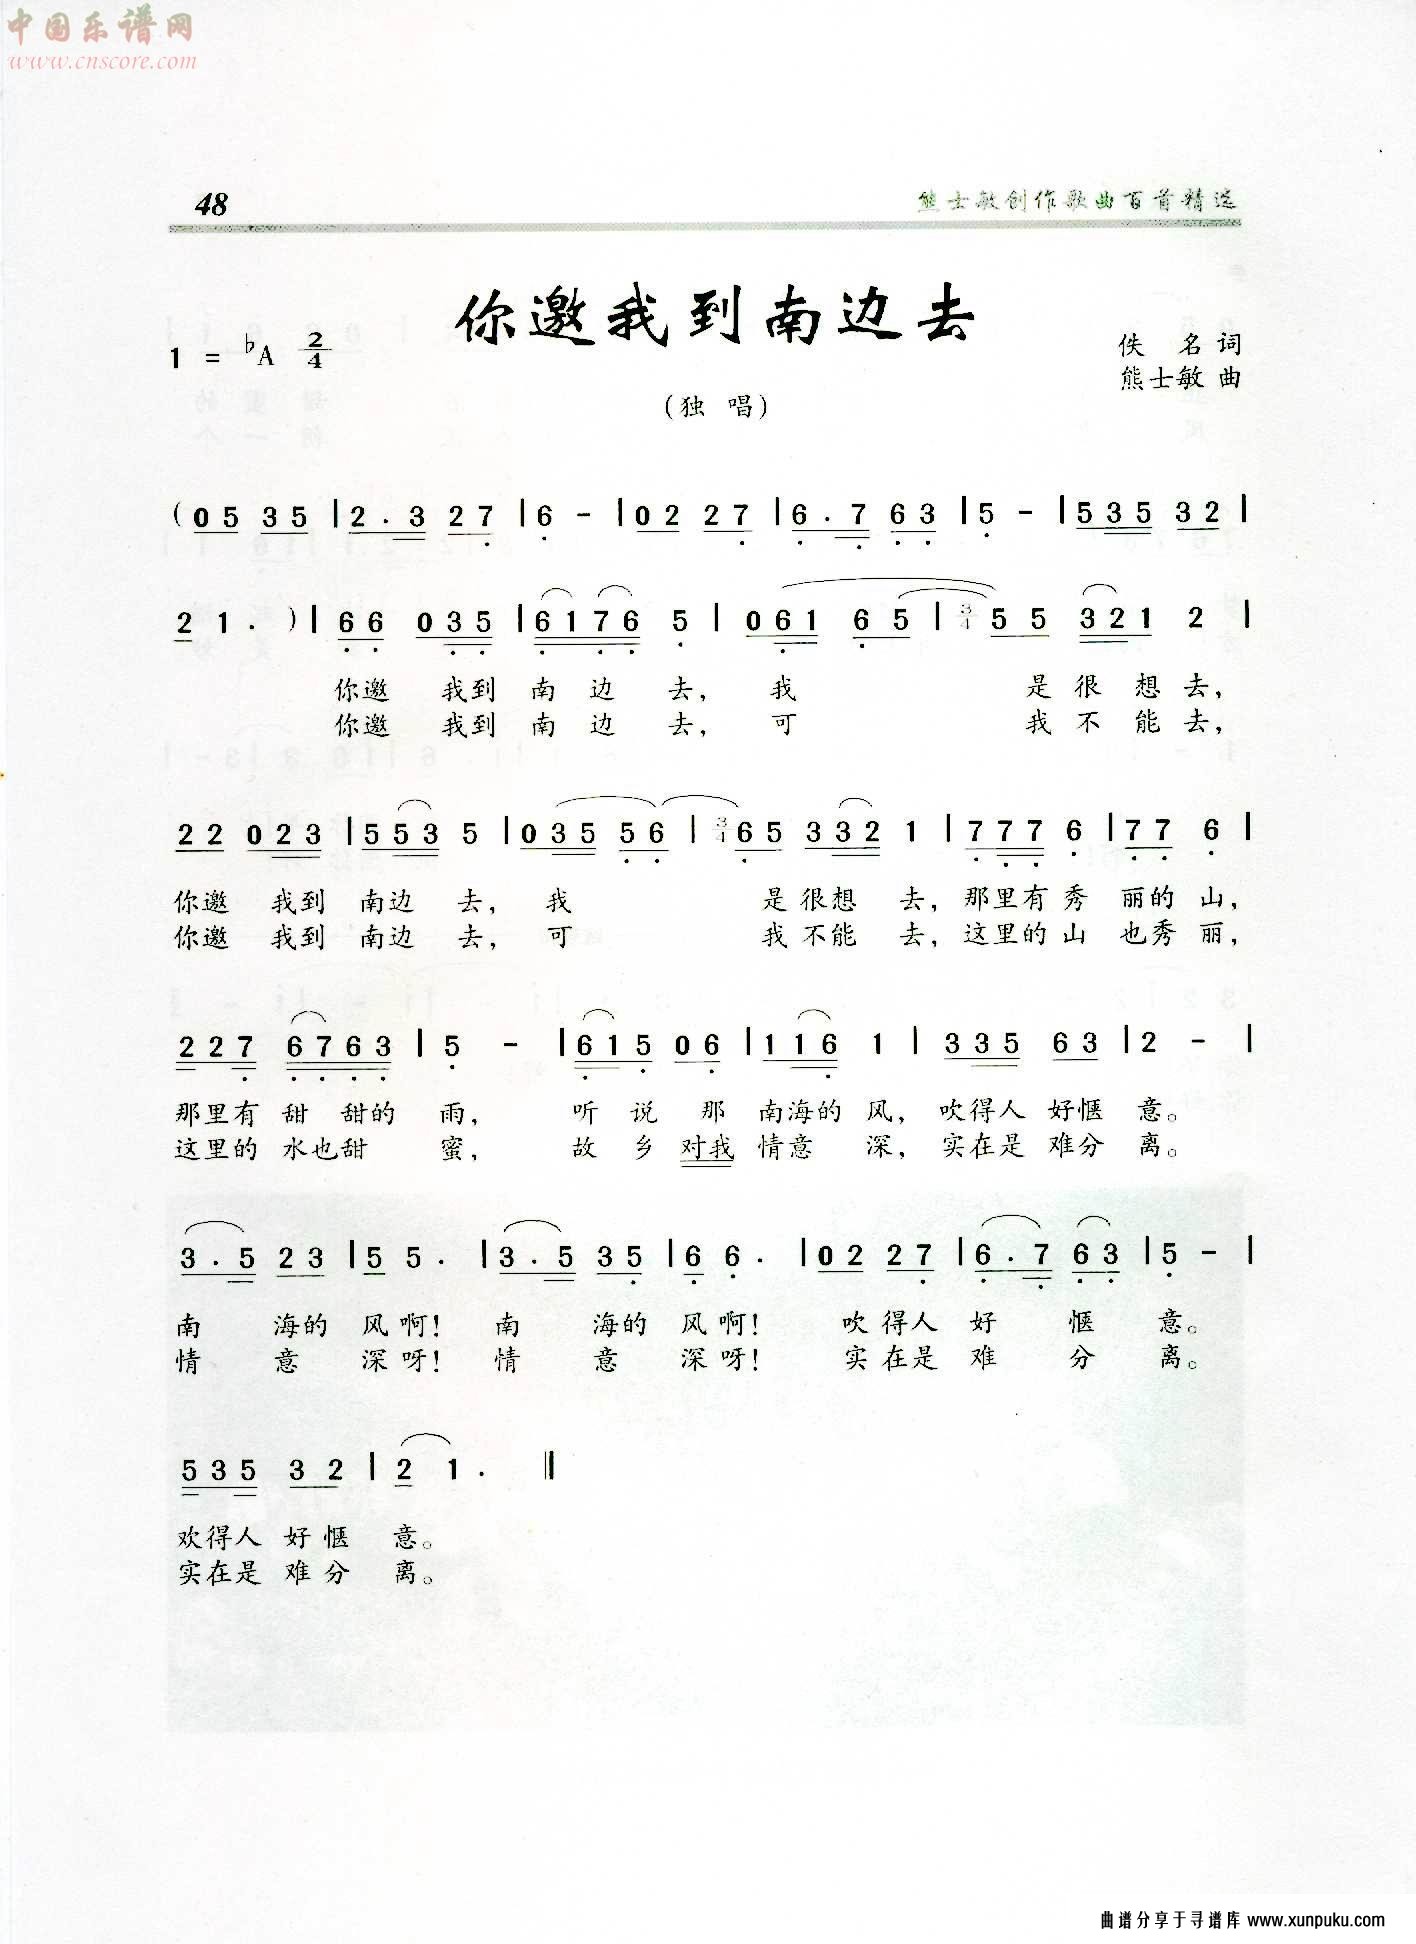 中国乐谱网
www.cnscore.com
48 熊士敏创作歌曲百首精选
你邀我到南边去
1 = ♭A 2/4
佚 名 词
熊士敏 曲
（独 唱）
（0 5 3 5 | 2 . 3 2 7 | 6 - | 0 2 2 7 | 6 . 7 6 3 | 5 - | 5 3 5 3 2 |
2 1 . ）| 6 6 0 3 5 | 6 1 7 6 5 | 0 6 1 6 5 | 3/4 5 5 3 2 1 2 |
你邀 我到 南 边 去， 我 是 很 想 去，
你邀 我到 南 边 去， 可 我 不 能 去，
2 2 0 2 3 | 5 5 3 5 | 0 3 5 5 6 | 3/4 6 5 3 3 2 1 | 7 7 7 6 | 7 7 6 |
你邀 我到 南边 去， 我 是 很想 去， 那里有 秀 丽的 山，
你邀 我到 南边 去， 可 我 不能 去， 这里的 山 也秀 丽，
2 2 7 6 7 6 3 | 5 - | 6 1 5 0 6 | 1 1 6 1 | 3 3 5 6 3 | 2 - |
那里有 甜 甜的 雨， 听 说 那 南海的 风， 吹得人 好惬 意。
这里的 水也甜 蜜， 故 乡 对我 情意 深， 实在是 难分 离。
3 . 5 2 3 | 5 5 . | 3 . 5 3 5 | 6 6 . | 0 2 2 7 | 6 . 7 6 3 | 5 - |
南 海的 风啊！ 南 海的 风啊！ 吹 得人 好 惬 意。
情 意 深呀！ 情 意 深呀！ 实 在是 难 分 离。
5 3 5 3 2 | 2 1 . ‖
欢得人 好 惬 意。
实在是 难 分 离。
曲谱分享于寻谱库 www.xunpuku.com